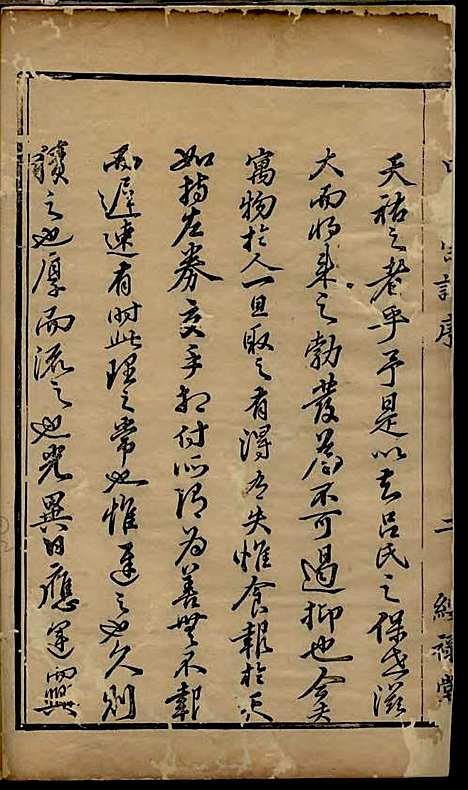 天祐之者乎予是以知呂氏之保世滋
大而將來之勃發为不可遏抑也今夫
寓物於人一旦取之有得有失惟食報於天
如持左券交手相付所謂為善無不報
而遲速有時此理之常也惟遲之也久則
積之也厚而流之也光異日應運而興
譜序
二